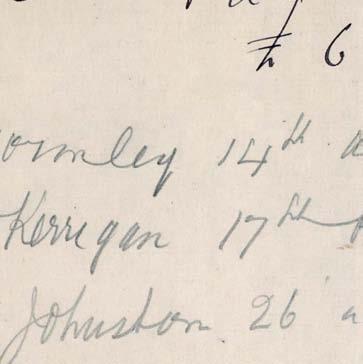 £ 6
ormley 14th a
Kerrigan 17th
Johnston 26 a